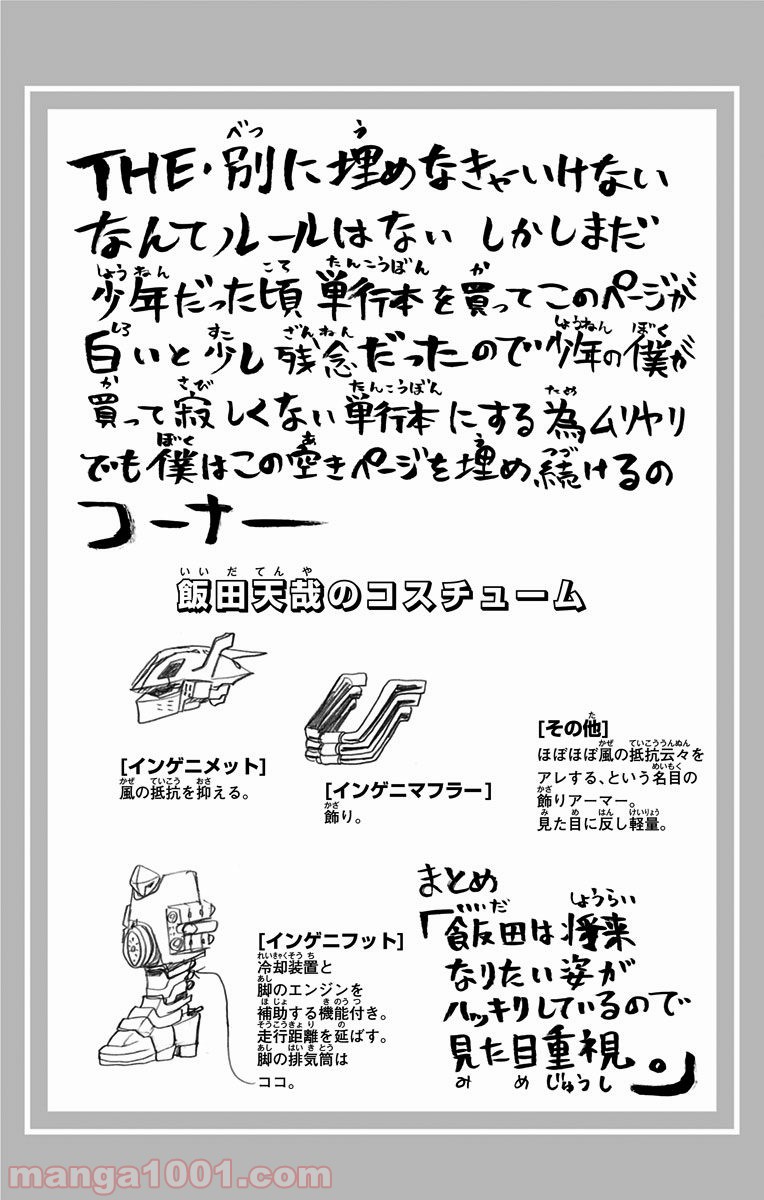 THE・別に埋めなきゃいけない
なんてルールはない しかしまだ
少年だった頃 単行本を買ってこのページが
白いと少し残念だったので少年の僕が
買って寂しくない単行本にする為ムリヤリ
でも僕はこの空きページを埋め続けるの
コーナー
飯田天哉のコスチューム
[インゲニメット]
風の抵抗を抑える。
[インゲニマフラー]
飾り。
[その他]
ほぼほぼ風の抵抗云々を
アレする、という名目の
飾りアーマー。
見た目に反し軽量。
[インゲニフット]
冷却装置と
脚のエンジンを
補助する機能付き。
走行距離を延ばす。
脚の排気筒は
ココ。
まとめ
「飯田は将来
なりたい姿が
ハッキリしているので
見た目重視。」
manga1001.com